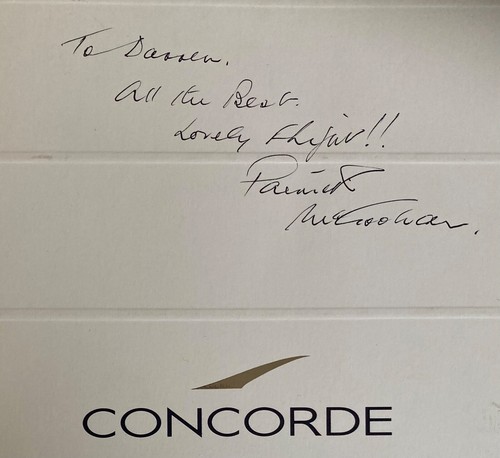 To Darren.
All the Best.
Lovely Flight!!
Patrick
McGoohan.
CONCORDE